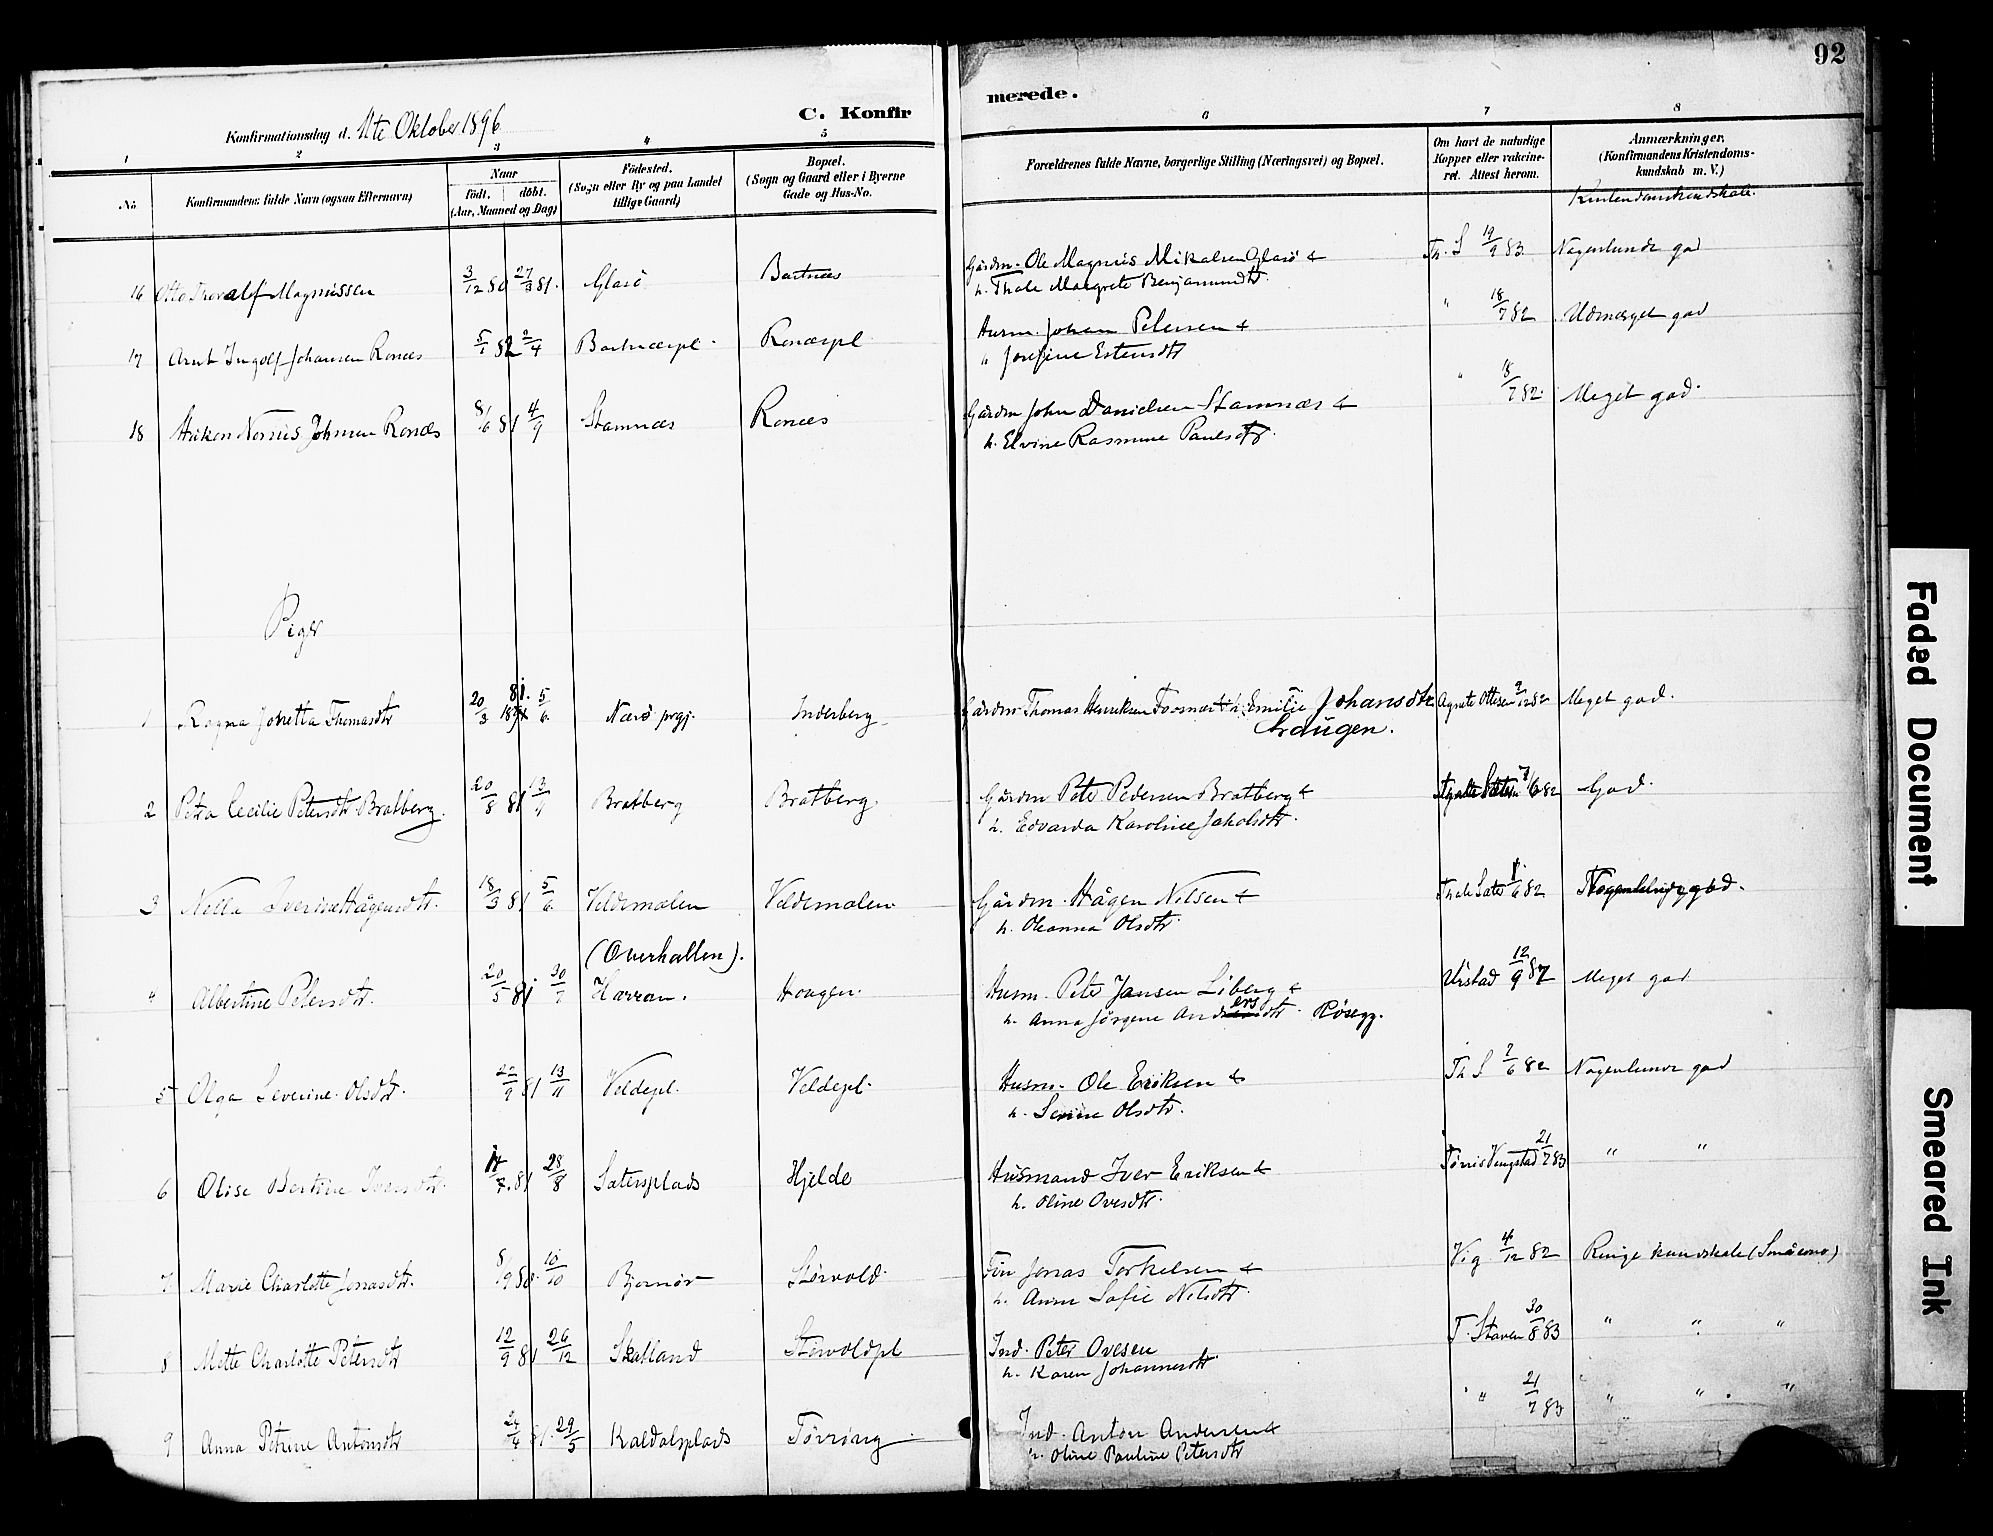 92
C. Konfirmerede.
Konfirmationsdag d. 11te Oktober 1896
1 2 3 4 5 6 7 8
No.
Konfirmandens fulde Navn (ogsaa Efternavn)
Naar
födt. döbt.
(Aar, Maaned og Dag)
Födested.
(Sogn eller By og paa Landet
tillige Gaard)
Bopæl.
(Sogn og Gaard eller i Byerne
Gade og Hus-No.
Forældrenes fulde Navne, borgerlige Stilling (Næringsvei) og Bopæl.
Om havt de naturlige
Kopper eller vakcine-
ret. Attest herom.
Anmærkninger.
(Konfirmandens Kristendoms-
kundskab m. V.)
Kristendomskundskab.
16 Otto Magnussen 3/12 80 27/3 81. Glasö Bartnæs Gårdm. Ole Magnus Mikalsen Glasö & Th. S 19/9 83 Nogenlunde god
h. Thale Margrete Benjaminsdtr.
17 Arnt Ingolf Johansen Ronæs 5/1 82 2/4 Bartnæspl. Ronæspl Husm. Johan Petersen & " 18/7 82 Udmærget god
h. Josefine Estensdtr
18 Håkon Johnsen Ronæs 8/6 81 4/9 Stamnæs Ronæs Gårdm John Danielsen Stamnæs & " 18/7 82. Meget god.
h. Elvine Rasmine Paulsdtr.
Piger
1 Ragna Jonetta Thomasdtr 20/3 81. 5/6 Nærö prgj. Inderberg Gårdm Thomas Henriksen Fosnæs & h. Emilie Johansdtr Agnete Ottesen 9/12 82 Meget god.
Draugen.
2 Petra Cecilie Petersdtr Bratberg. 20/8 81 13/11 Bratberg Bratberg Gårdm Peter Pedersen Bratberg & 7/6 82 God.
h. Edvarda Karoline Jakobsdtr.
3 Hågensdtr. 18/3 81 5/6 Veldemalen Veldemalen Gårdm. Hågen Nilsen & Thale Sæter 1/6 82 Nogenlunde god.
h. Oleanna Olsdtr.
(Overhallen).
4 Albertine Petersdtr. 20/5 81 30/7 Harran. Haugen. Husm. Peter Jansen Liberg & 12/9 87 Meget god
h. Anna Jörgine Andersdtr. Rösegg.
5 Olga Severine Olsdtr. 22/9 81 13/11 Veldepl. Veldepl. Husm. Ole Eriksen & Th S 7/6 82 Nogenlunde god
h. Olsdtr.
6 Olise Bertine Iversdtr. 81 28/8 Sætersplads Hjelde Husmand Iver Eriksen & Törris Vengstad 21/7 83 " "
h. Oline Ovesdtr.
7 Marie Charlotte Jonasdtr. 8/9 80. 10/10 Bjørnör Störvold. Jonas Torkelsen & Vig 4/12 82 Ringe kundskab
h. Anne Sofie Nilsdtr.
8 Mette Charlotte Petersdtr 12/9 81 26/12 Skatland Störvoldpl Ind. Peter Ovesen T. Staven 30/8 83 " " "
h. Karen Johannesdtr.
9 Anna Petrine Antonsdtr 24/4 81. 29/5 Kaldalsplads Törring Ind. Anton Andersen & " 21/7 83 " " "
h. Oline Pauline Petersdtr
Faded Document
Smeared Ink